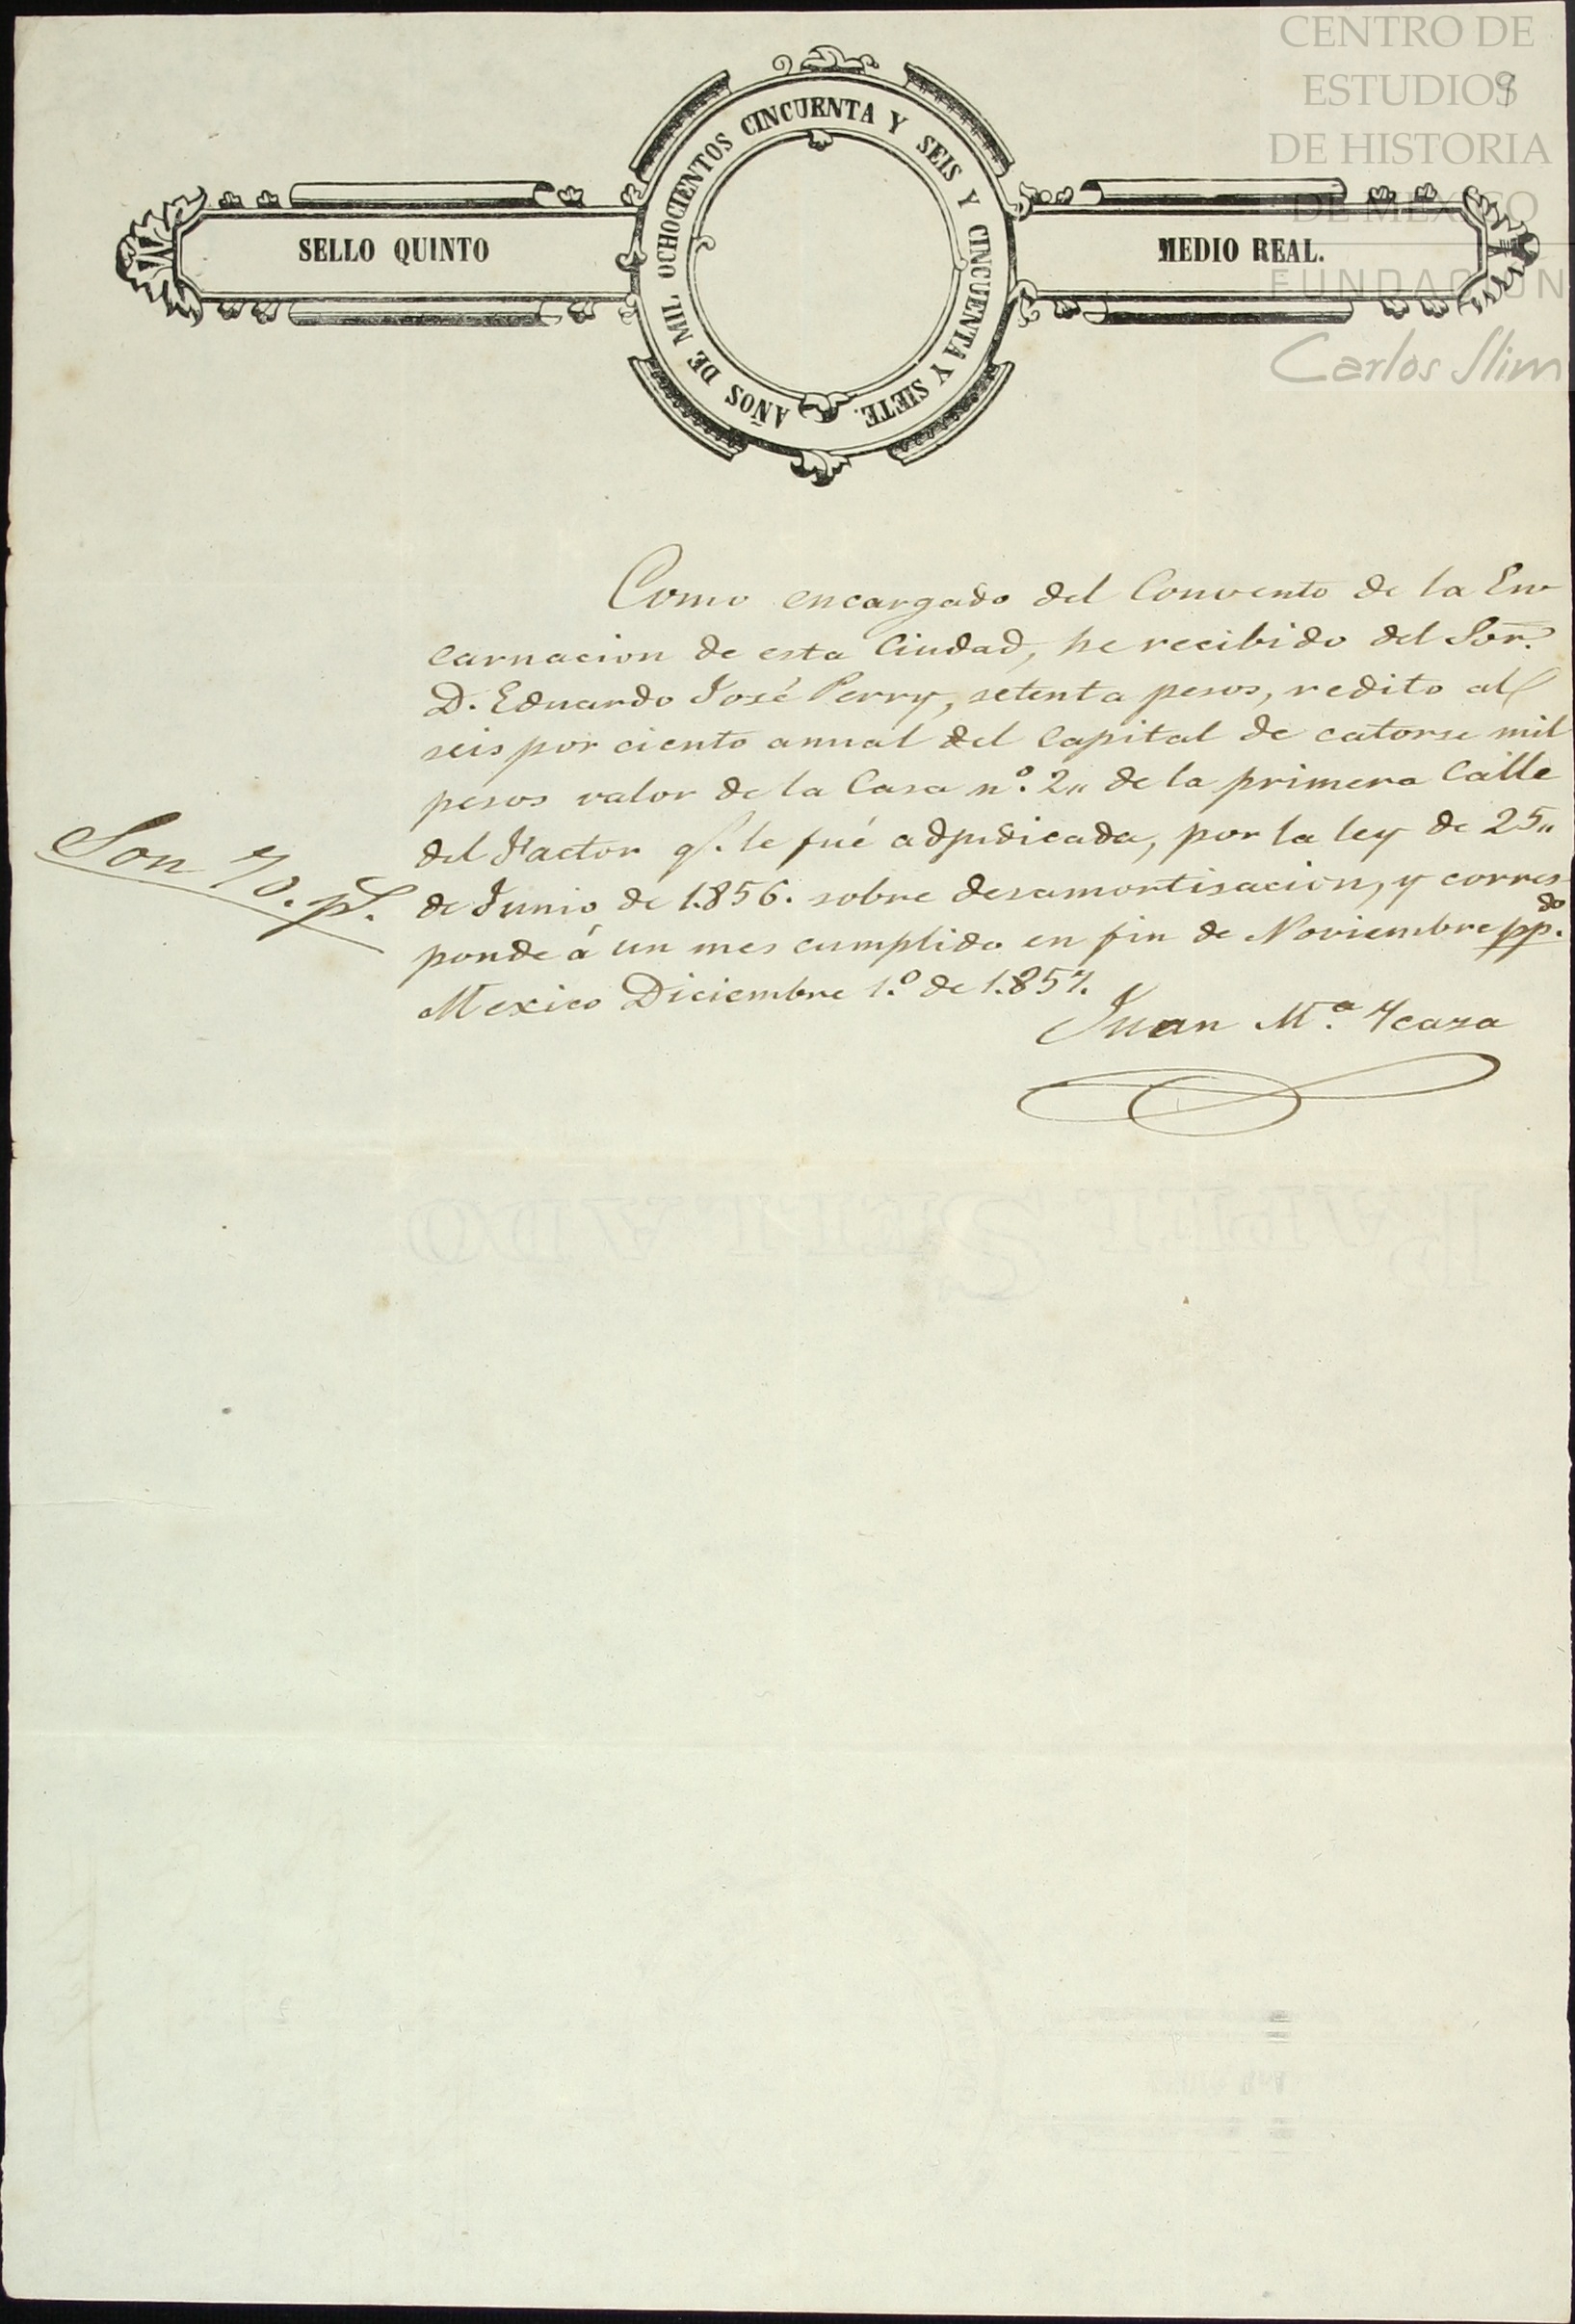 CENTRO DE
ESTUDIOS
DE HISTORIA
DE MÉXICO
FUNDACIÓN
Carlos Slim
SELLO QUINTO
AÑOS DE MIL OCHOCIENTOS CINCUENTA Y SEIS Y CINCUENTA Y SIETE.
MEDIO REAL.
Como encargado del Convento de la En
carnacion de esta Ciudad, he recibido del Sor.
D. Eduardo José Perry, setenta pesos, redito al
seis por ciento anual del Capital de catorse mil
pesos valor de la Casa nº. 2,, de la primera Calle
del Factor q.e le fué adjudicada, por la ley de 25,,
de Junio de 1.856. sobre desamortisacion, y corres-
ponde á un mes cumplido en fin de Noviembre pp.do
Mexico Diciembre 1.º de 1.857.
Son 70. ps.
Juan M.ª Ycaza